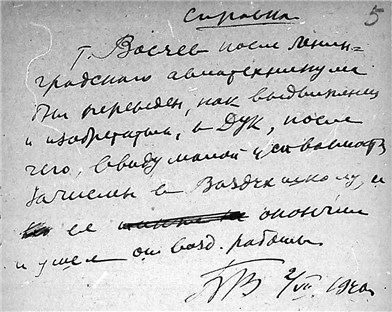 5
Справка
Т. Васчев после Ленин-
градского авиатехникума
был переведен, как выдвиженец
и изобретатель, в ДУК, после
чего, ввиду малой успеваемости
зачислен в школу, и
ее окончил
и ушел от возд. работы
ПВ 2/VII